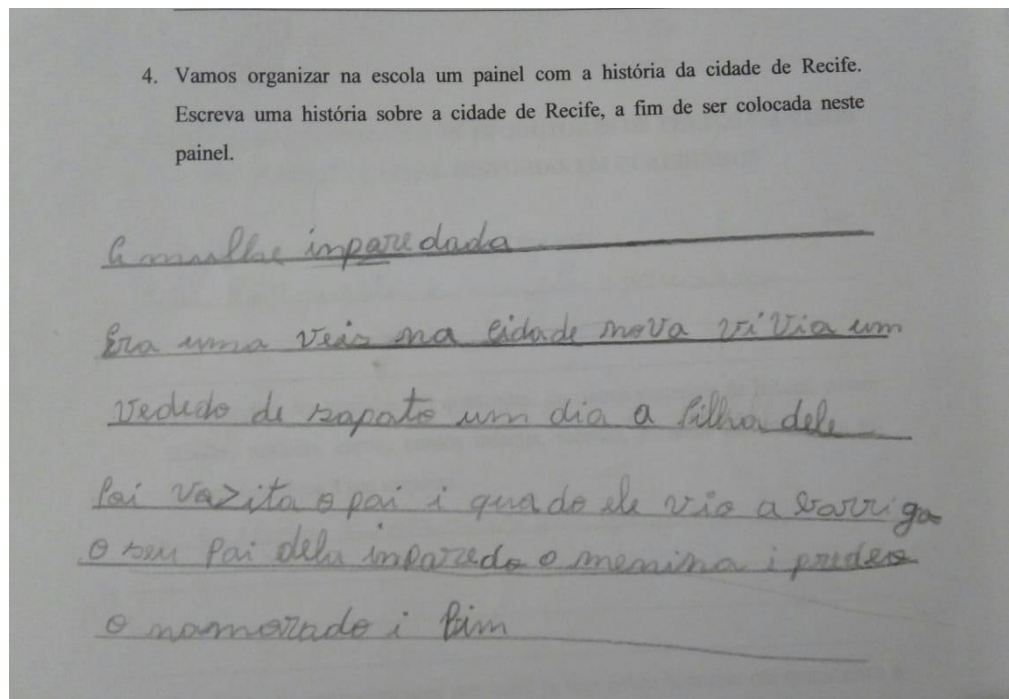 4. Vamos organizar na escola um painel com a história da cidade de Recife.
Escreva uma história sobre a cidade de Recife, a fim de ser colocada neste
painel.
A mulhe inparedada
Era uma veis na cidade nova vivia um
vededo de sapato um dia a filha dele
foi vazita o pai i quado ele vio a barriga
o seu pai dela inparedo o menina i predeo
o namorado i fim